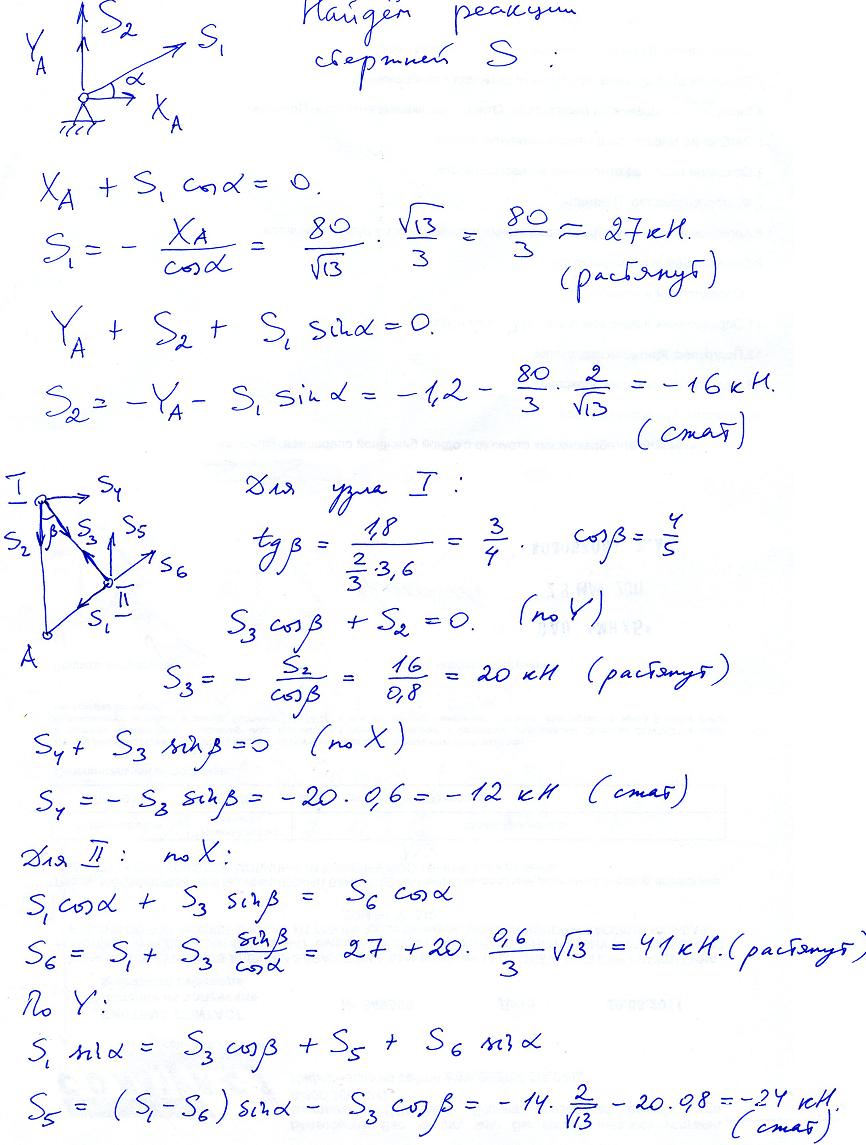 Найдём реакции
стержней S :
Y_A S_2 S_1 α X_A
X_A + S_1 cosα = 0.
S_1 = - X_A/cosα = 80/√13 · √13/3 = 80/3 ≈ 27 кН.
(растянут)
Y_A + S_2 + S_1 sinα = 0.
S_2 = -Y_A - S_1 sinα = -1,2 - 80/3 · 2/√13 = -16 кН.
(сжат)
I S_4 S_2 β S_3 S_5 S_6 II S_1 A
Для узла I :
tgβ = 1,8/(2/3 · 3,6) = 3/4. cosβ = 4/5
S_3 cosβ + S_2 = 0. (по Y)
S_3 = - S_2/cosβ = 16/0,8 = 20 кН (растянут)
S_4 + S_3 sinβ = 0 (по X)
S_4 = - S_3 sinβ = -20 · 0,6 = -12 кН (сжат)
Для II : по X:
S_1 cosα + S_3 sinβ = S_6 cosα
S_6 = S_1 + S_3 sinβ/cosα = 27 + 20 · 0,6/3 √13 = 41 кН. (растянут)
По Y:
S_1 sinα = S_3 cosβ + S_5 + S_6 sinα
S_5 = (S_1 - S_6) sinα - S_3 cosβ = -14 · 2/√13 - 20 · 0,8 = -24 кН.
(сжат)